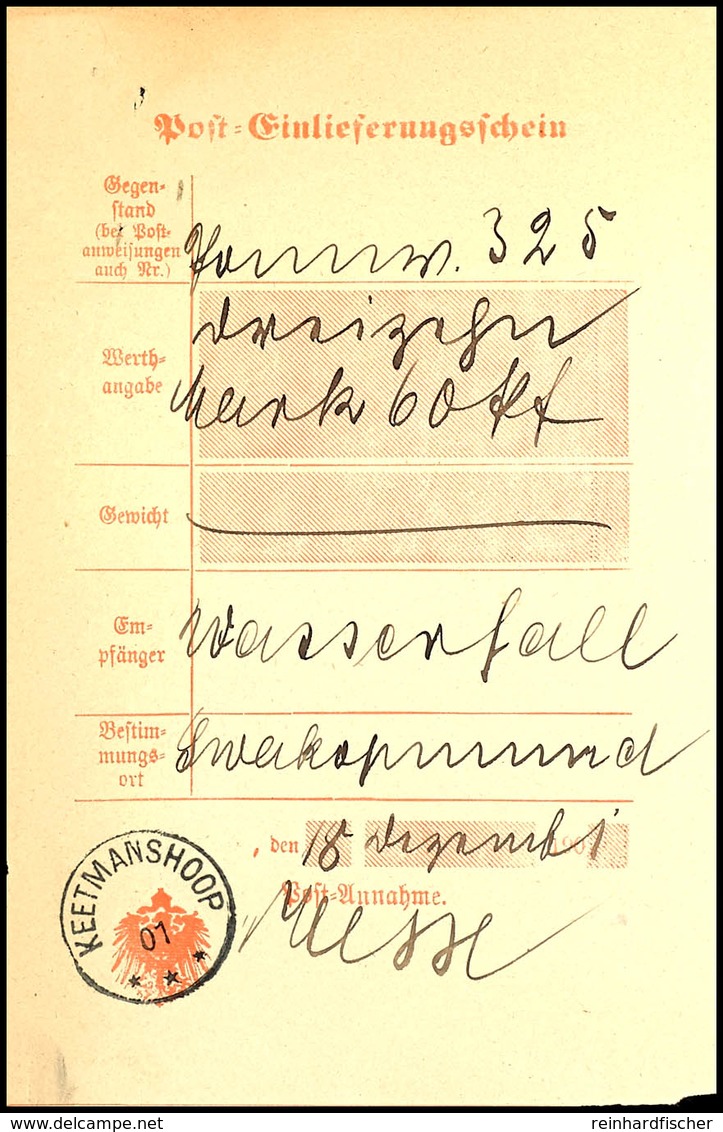 Post-Einlieferungsschein
Gegen-
stand
(bei Post-
anweisungen
auch Nr.)
325
Werth-
angabe
dreizehn
Mark 60 Pf
Gewicht
Em-
pfänger
Wasserfall
Bestim-
mungs-
ort
Swakopmund
, den 18 Dezemb 1901
Post-Annahme.
KEETMANSHOOP
01
* * *
delcampe.net
reinhardfischer